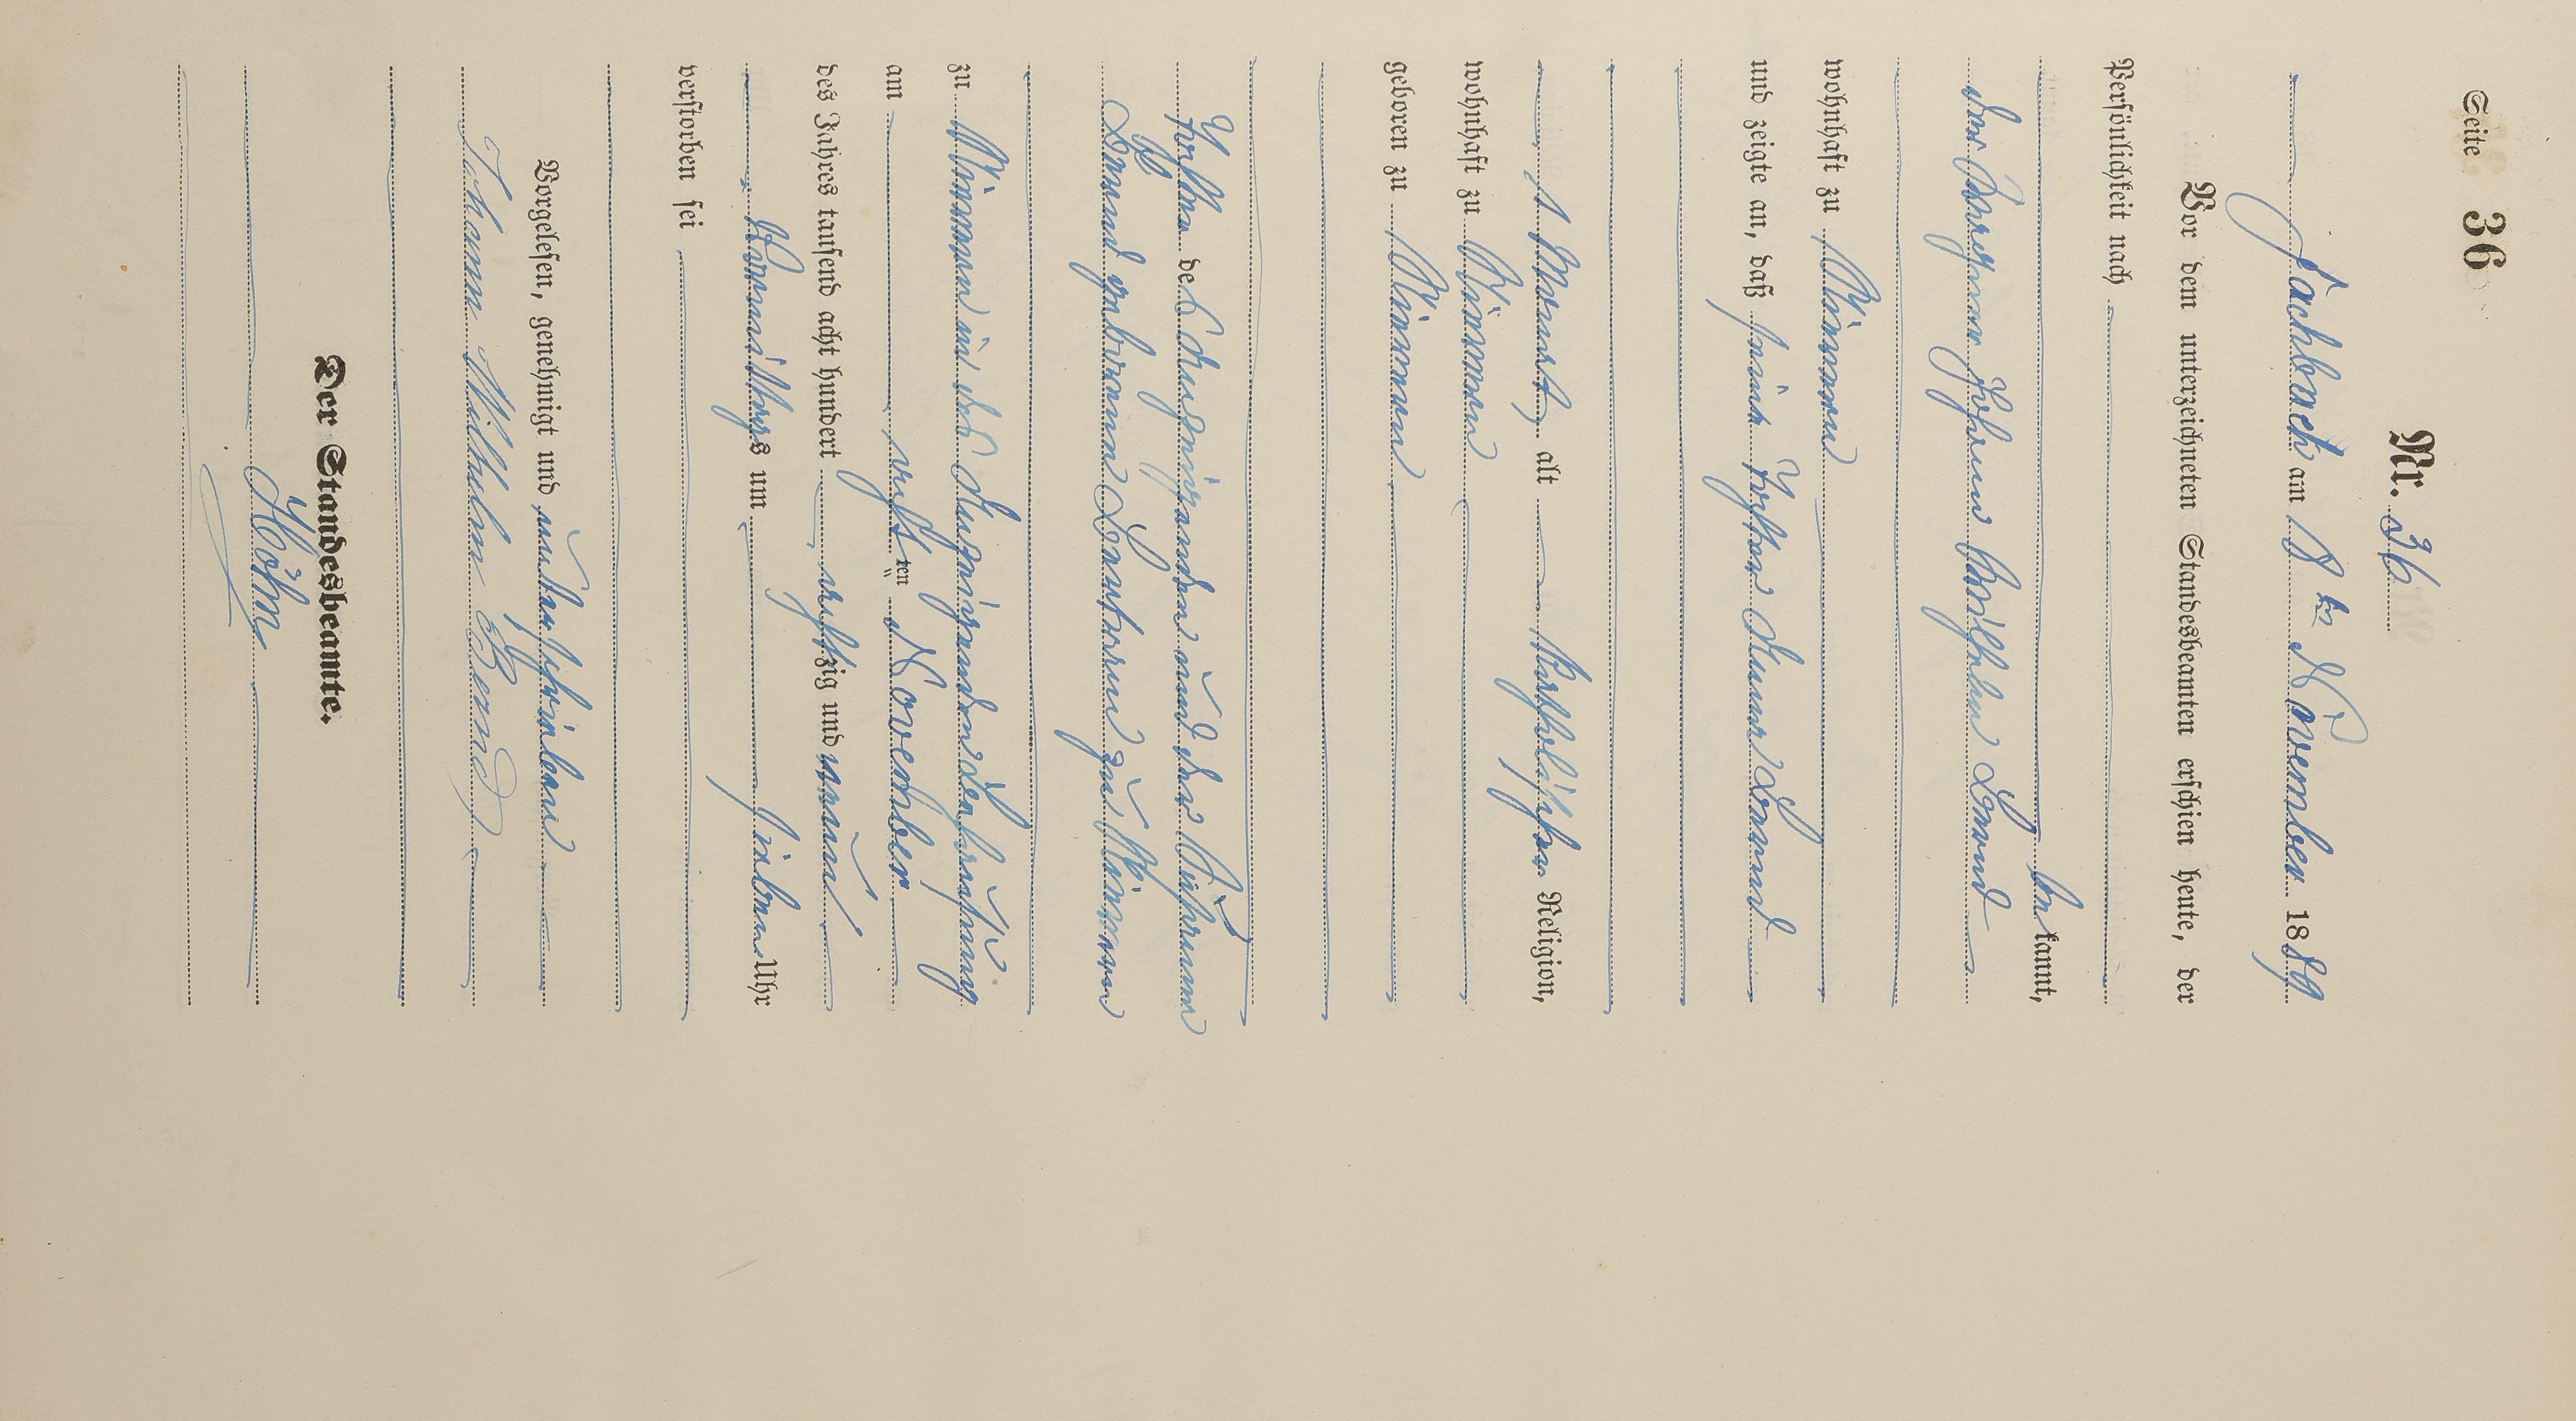 Seite 36
Nr. 36
Fachbach am 8ten November 1889
Vor dem unterzeichneten Standesbeamten erschien heute, der
Persönlichkeit nach
bekannt,
der Bergmann Johann Wilhelm
wohnhaft zu Nievern
und zeigte an, daß seine Tochter Anna
1 Monat alt katholischer Religion,
wohnhaft zu Nievern
geboren zu Nievern
Tochter des Anzeigenden und der
geborenen zu Nievern
zu Nievern in des Anzeigenden Behausung
am achtten November
des Jahres tausend acht hundert achtzig und neun
Vormittags um sieben Uhr
verstorben sei
Vorgelesen, genehmigt und unterschrieben
Johann Wilhelm
Der Standesbeamte.
Höhn